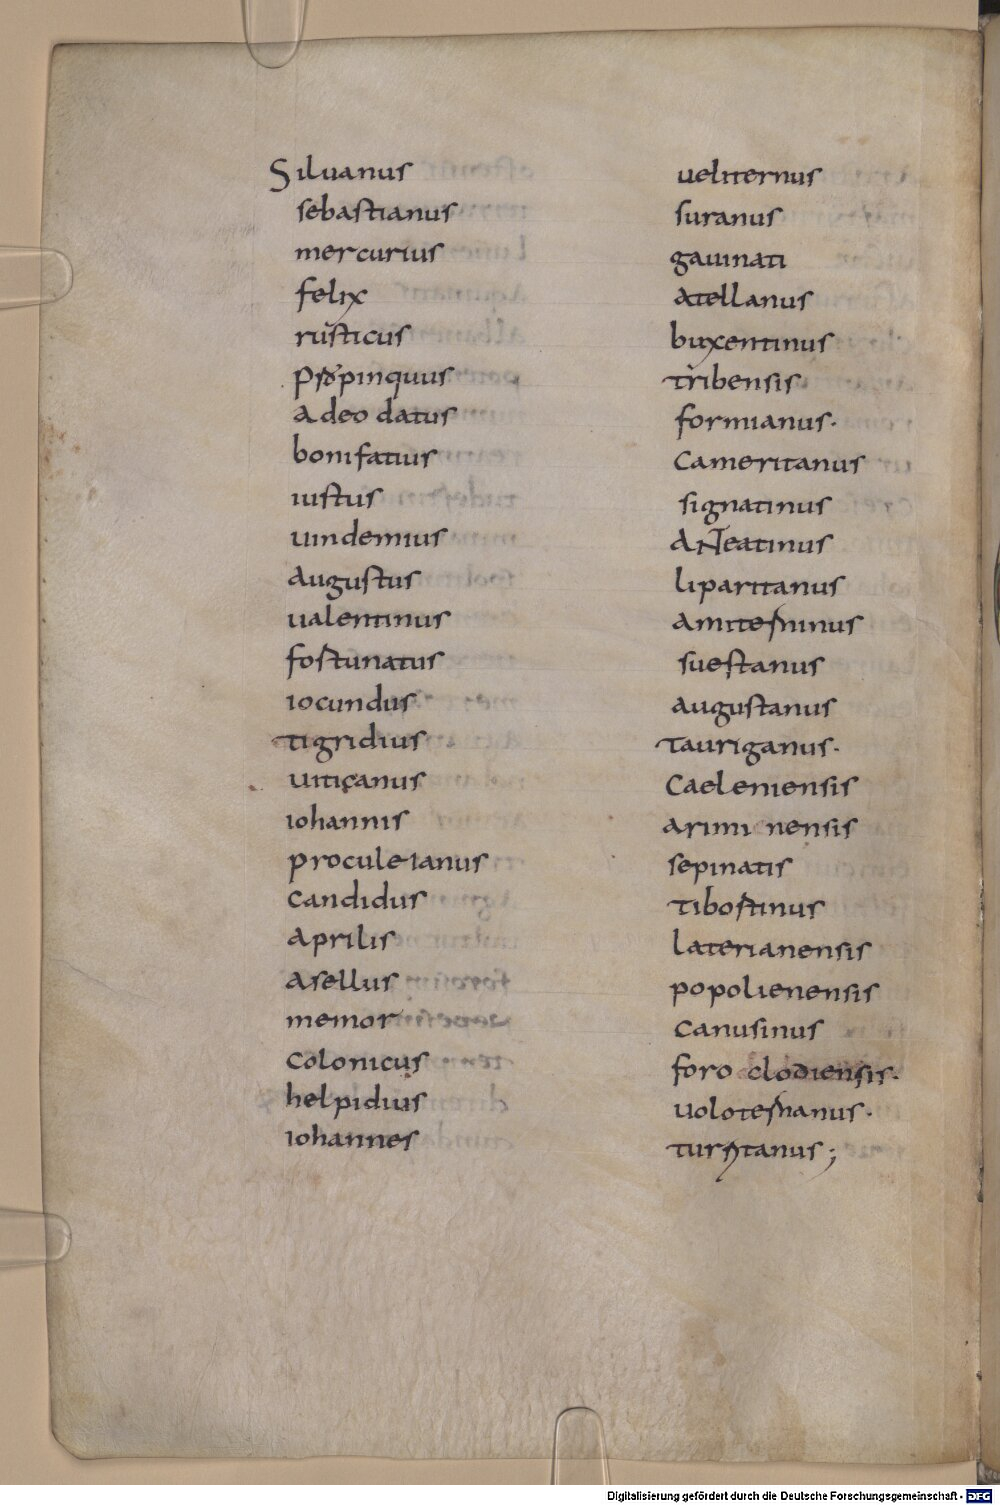 Siluanus
sebastianus
mercurius
felix
rusticus
propinquus
adeo datus
bonifatius
iustus
uindemius
augustus
ualentinus
fostunatus
iocundus
tigridius
uiticanus
iohannis
proculeianus
candidus
aprilis
asellus
memor
colonicus
helpidius
iohannes
ueliternus
suranus
gauinati
atellanus
buxentinus
tribensis
formianus.
cameritanus
signatinus
aNTeatinus
liparitanus
amiterninus
suestanus
augustanus
tauriganus.
Caeleniensis
arimi nensis
sepinatis
tibostinus
laterianensis
popolienensis
canusinus
foro clodiensis.
uoloternanus.
turritanus;
Digitalisierung gefördert durch die Deutsche Forschungsgemeinschaft - DFG